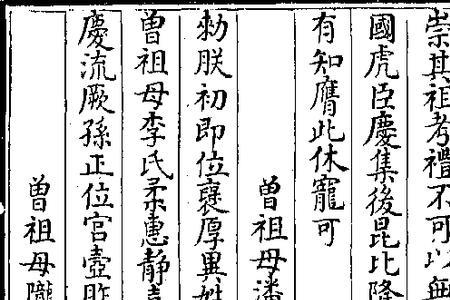 崇其祖考禮不可以無
國虎臣慶集後昆比降
有知膺此休寵可
曾祖母潘
勑朕初即位襃厚異姓
曾祖母李氏柔惠靜
慶流厥孫正位宮壼昨
曾祖母隴